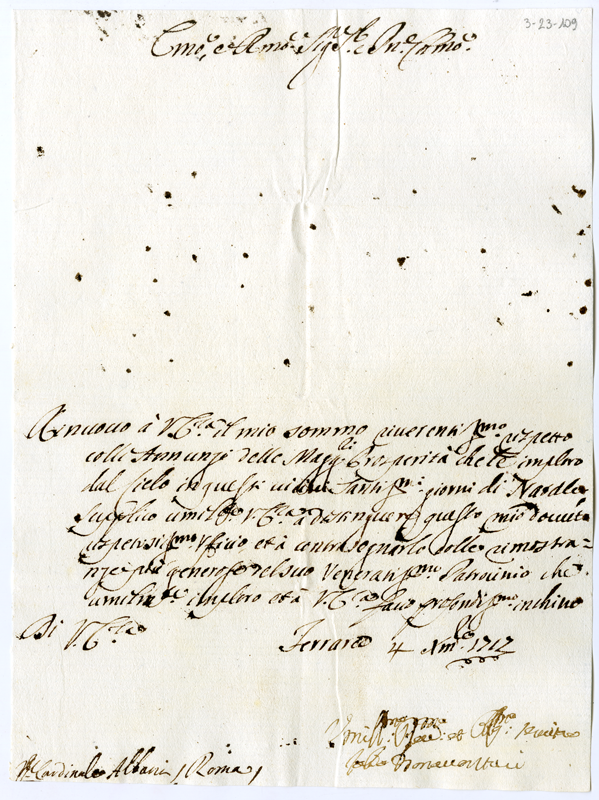 3-23-109
Emo, e Rmo Sigre, Sigre e Pne Colmo
Rinuovo à V. Eza il mio sommo riverentissmo rispetto
colli Annunzj delle Maggri Prosperità che le imploro
dal Cielo in questi vicini Santissmi giorni di Natale
Supplico umilte V. Eza a distinguere questo mio dovuto
rispettosissmo Uffizio, et à contrasegnarlo colle rimostra-
nze più generose del suo Veneratissmo Patrocinio che
umilmte imploro et à V. Eza faccio profondissmo inchino
Di V. Eza Ferrara 4 Xmbre 1712
Umilissmo Devmo et Obbmo Servitre
Bonaventura
Sr Cardinale Albani / Roma /